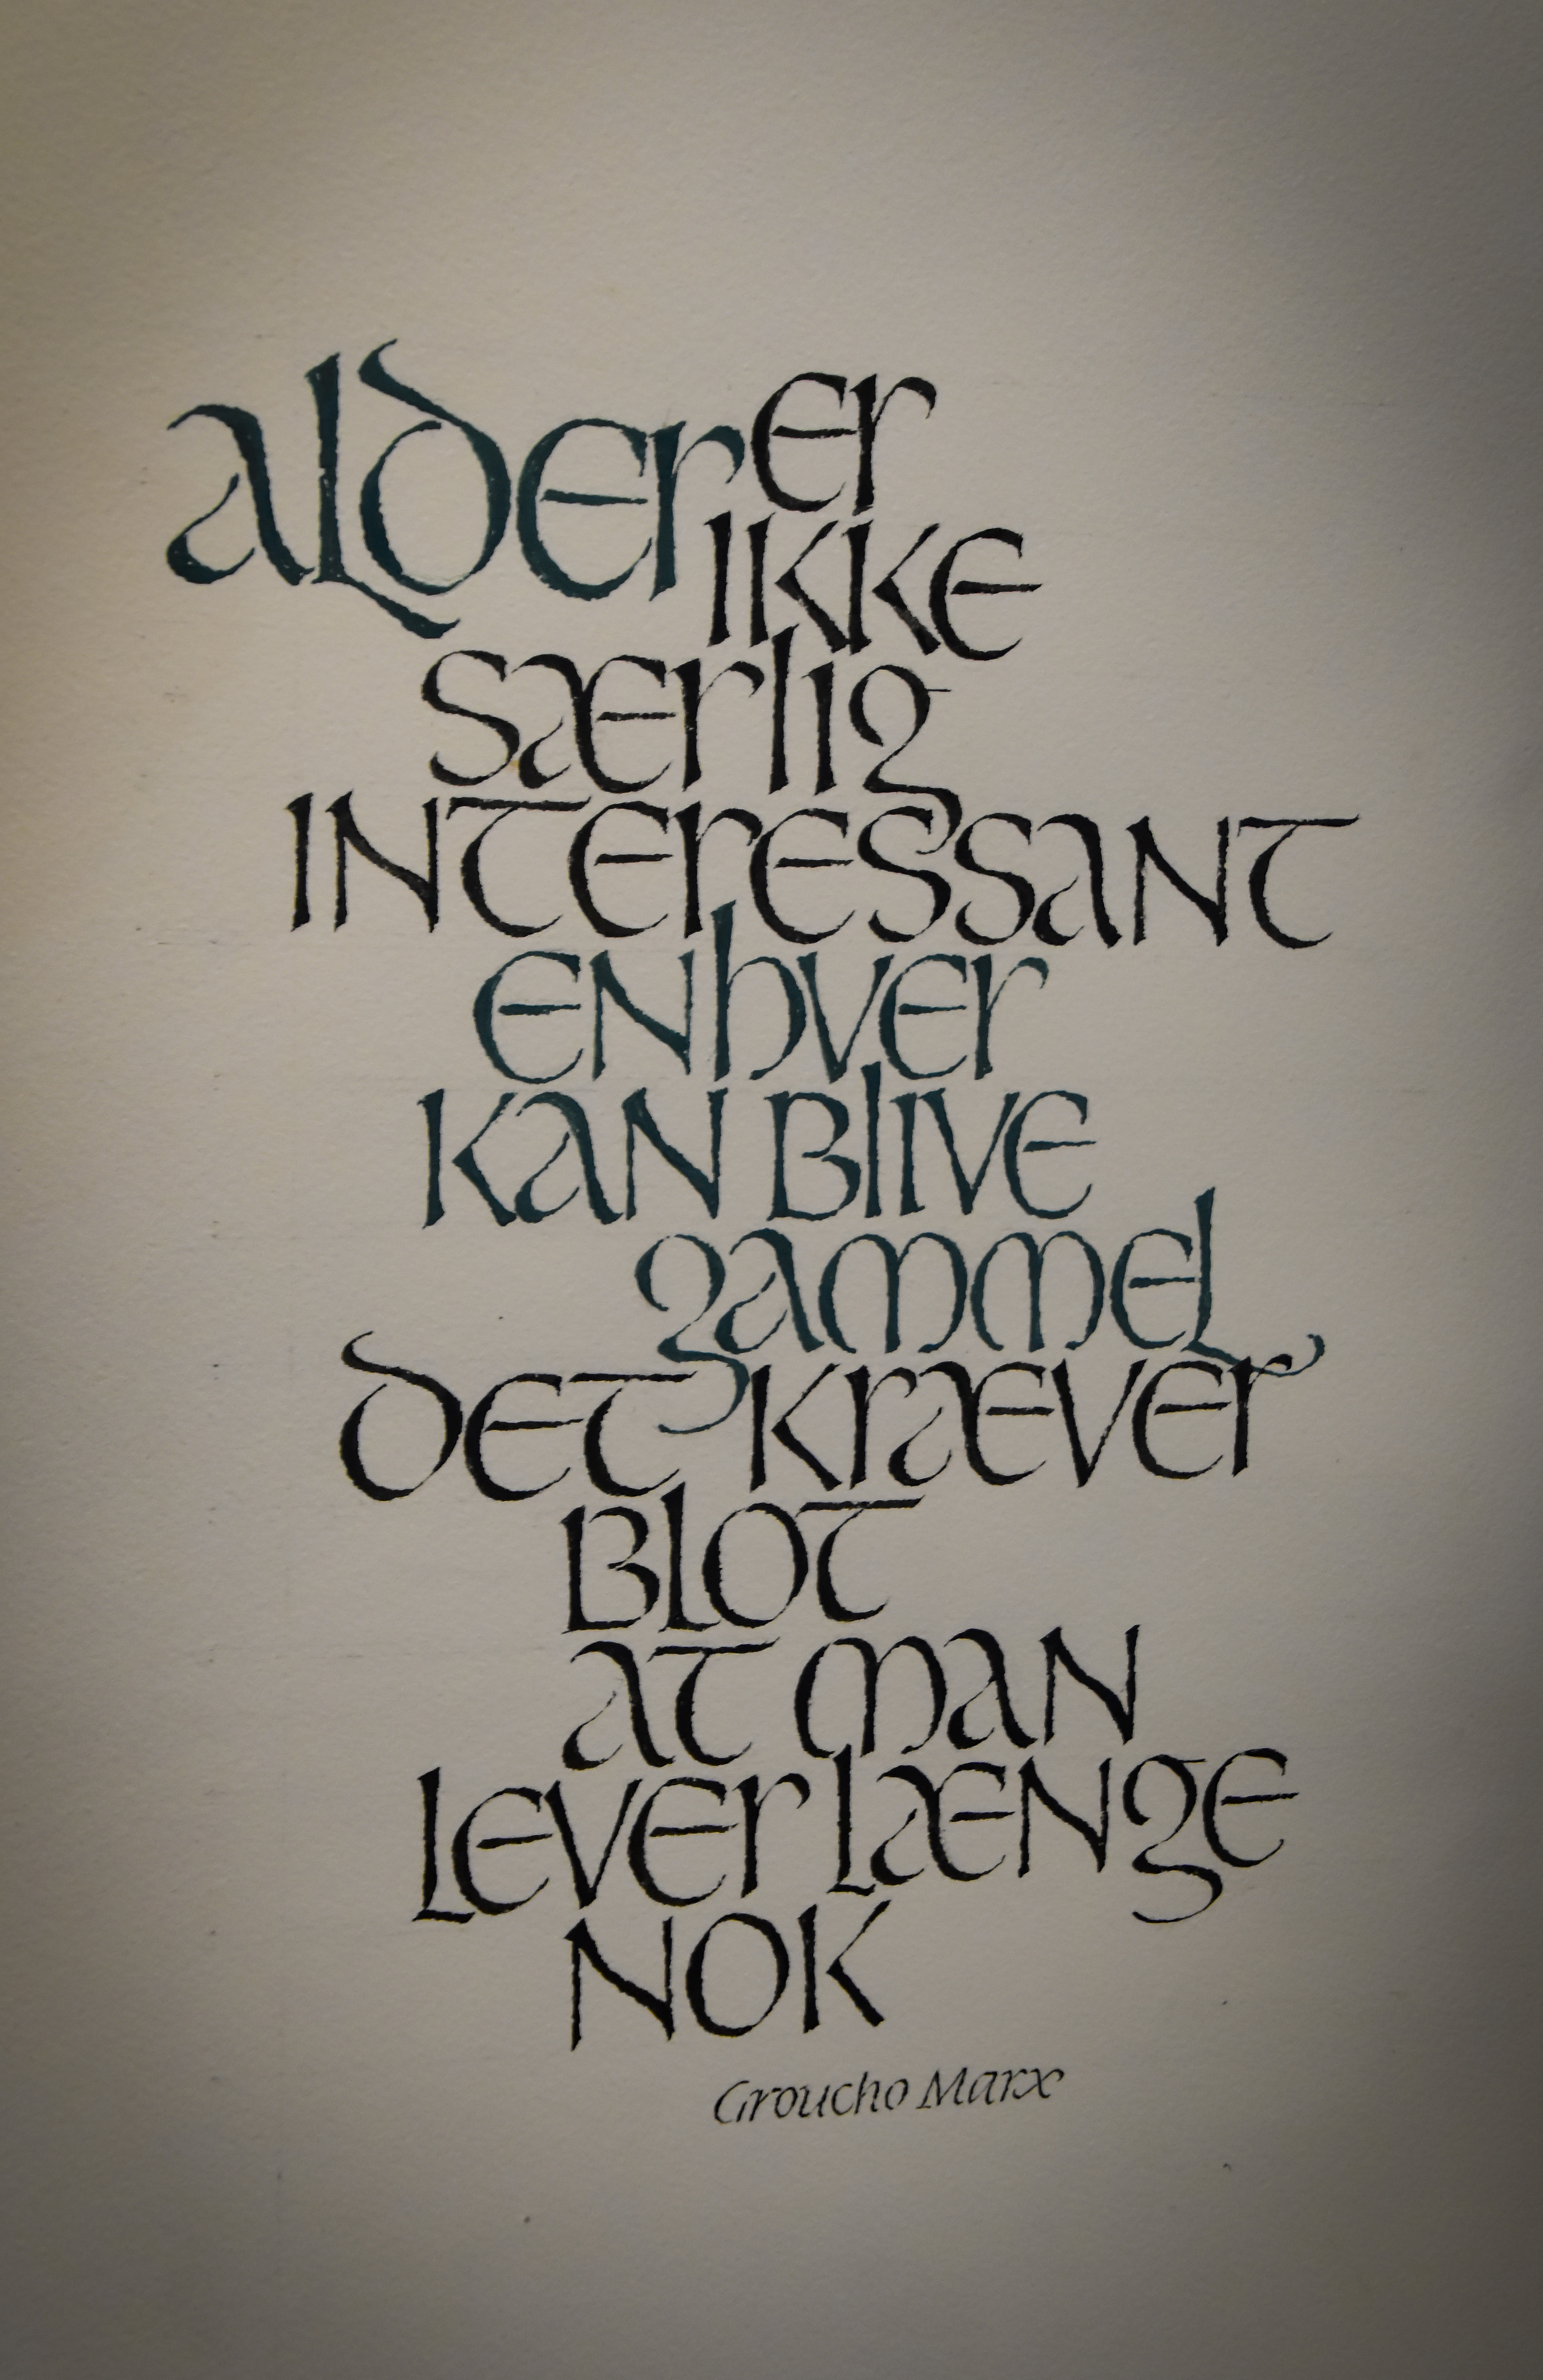 alder er
ikke
særlig
interessant
enhver
kan blive
gammel
det kræver
blot
at man
lever længe
nok
Groucho Marx